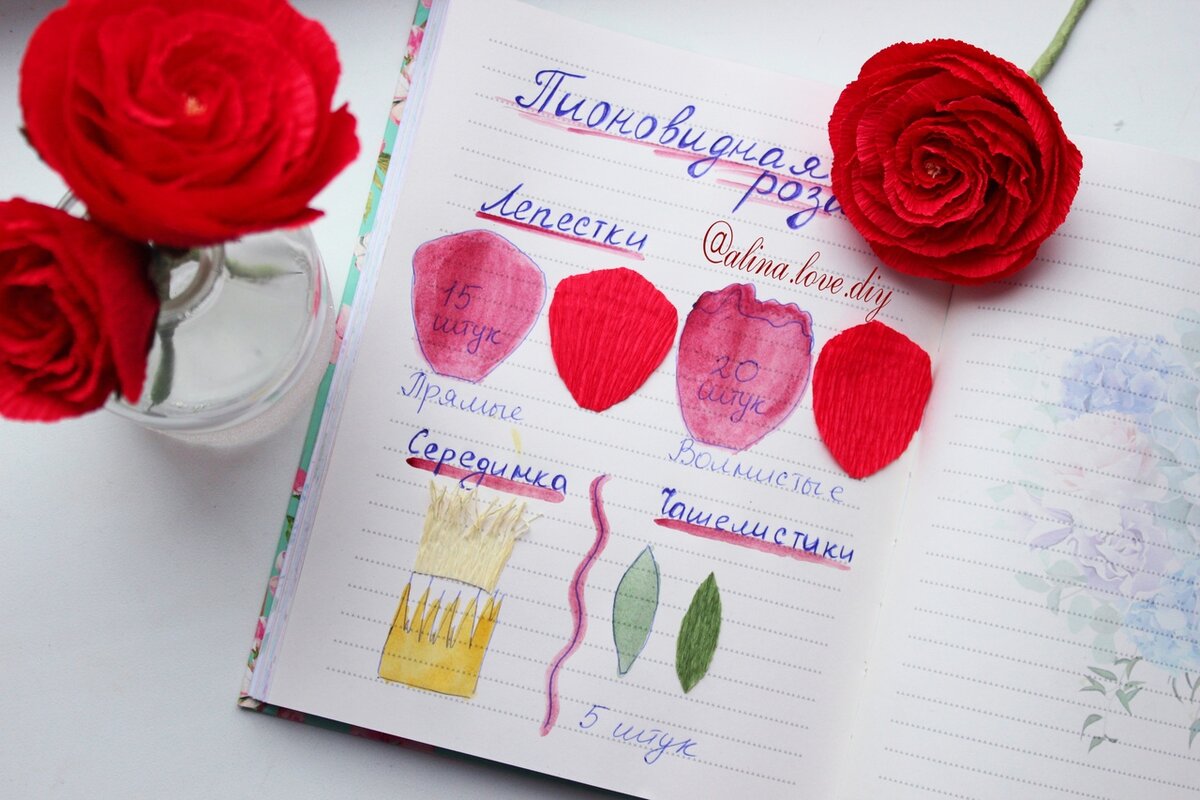 Пионовидная
роза
Лепестки
@alina.love.diy
15
штук
20
штук
Прямые
Волнистые
Серединка
Чашелистики
5 штук